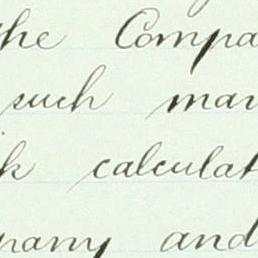 the Compa
such man
k calculat
pany and